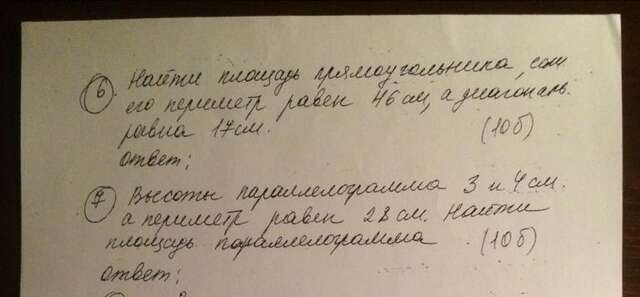 6 Найти площадь прямоугольника, если
его периметр равен 46 см, а диагональ
равна 17 см. (10б)
ответ:
7 Высоты параллелограмма 3 и 4 см.
а периметр равен 28 см. Найти
площадь параллелограмма (10б)
ответ: